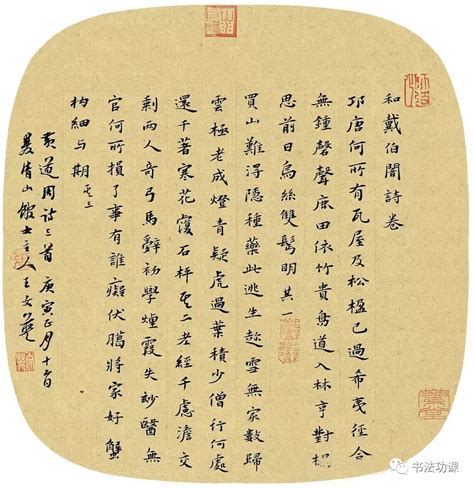 和戴伯闇詩卷
邛唐何所有瓦屋及松楹已過希夷徑合
無鍾磬聲鹿田依竹貴鳥道入林亨對榻
思前日烏絲雙髩明其一
買山難得隱種藥此逃生雪無家數歸
雲極老成燈青疑虎過葉積少僧行何處
還千著寒花覆石枰其二老經千慮澹交
剩兩人奇弓馬辭初學煙霞失妙醫無
官何所損了事有誰癡伏臘將家好蟹
杓細与期其三
黃道周詩三首庚寅正月十
山館主人王文
书法功课